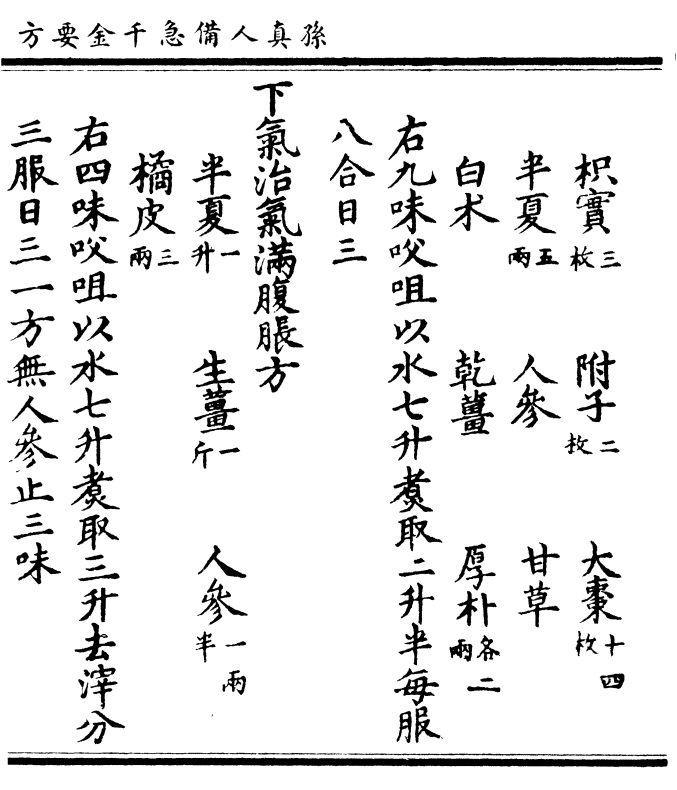 孫真人備急千金要方
枳實三枚 附子二枚 大棗十四枚
半夏五兩 人參 甘草
白术 乾薑 厚朴各二兩
右九味㕮咀以水七升煑取二升半每服
八合日三
下氣治氣滿腹脹方
半夏一升 生薑一斤 人參一兩半
橘皮三兩
右四味㕮咀以水七升煑取三升去滓分
三服日三一方無人參止三味